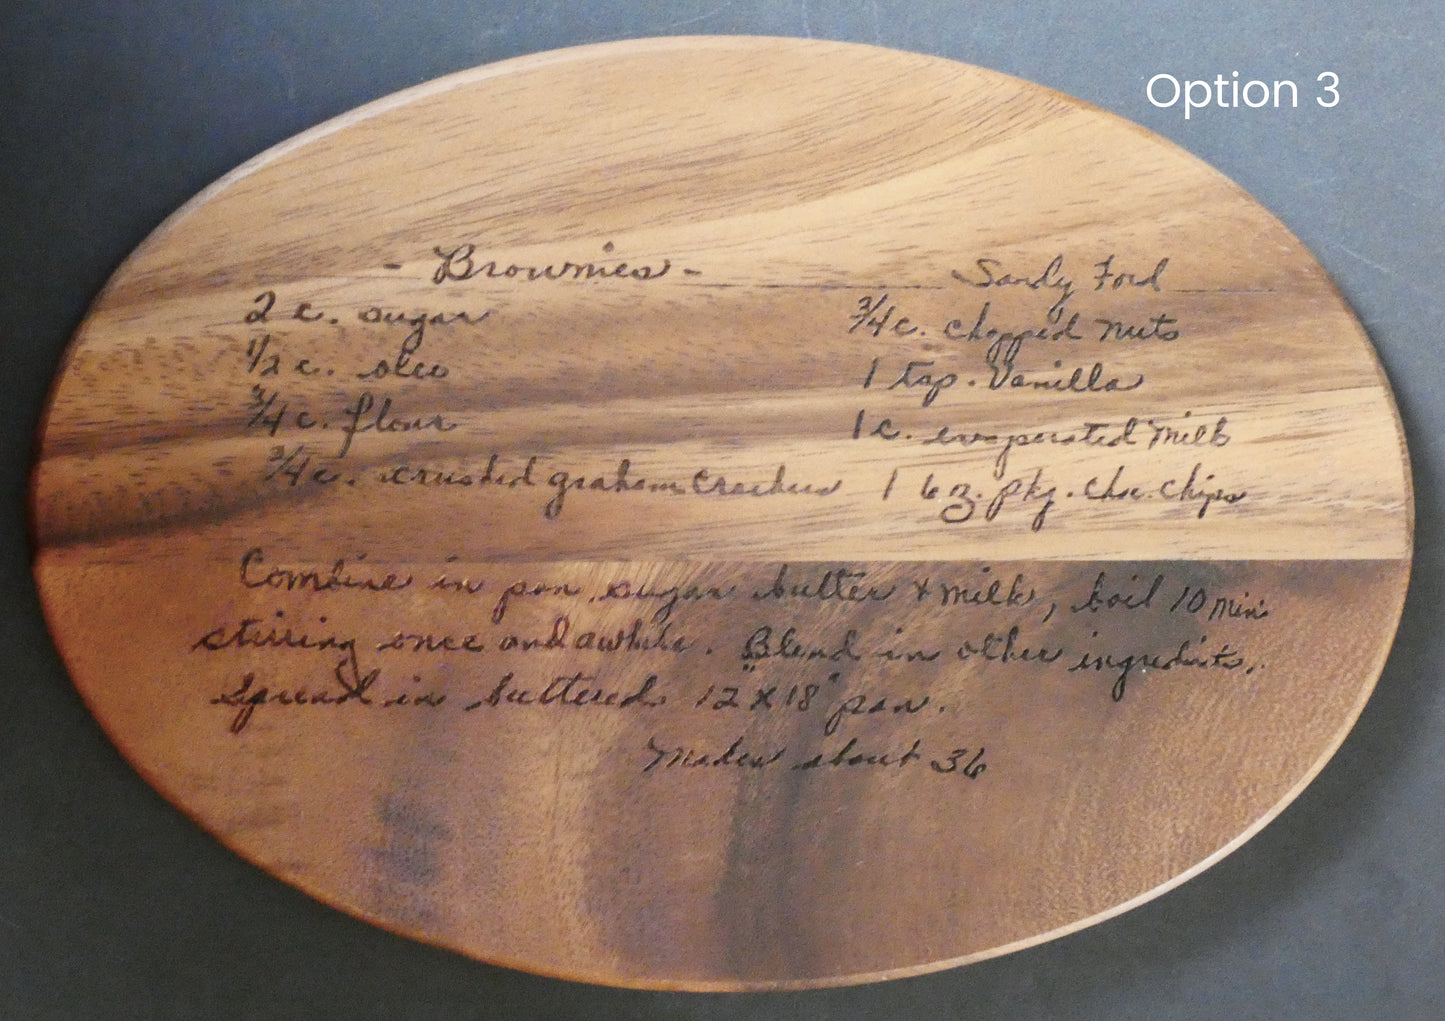 Option 3
- Brownies -
Sandy Ford
2 c. sugar
1/2 c. oleo
3/4 c. flour
3/4 c. crushed graham crackers
3/4 c. chopped nuts
1 tsp. Vanilla
1 c. evaporated milk
1 6 z. pkg. choc. chips
Combine in pan, sugar butter & milk, boil 10 min
stirring once and awhile. Blend in other ingredients.
Spread in buttered 12" x 18" pan.
Makes about 36